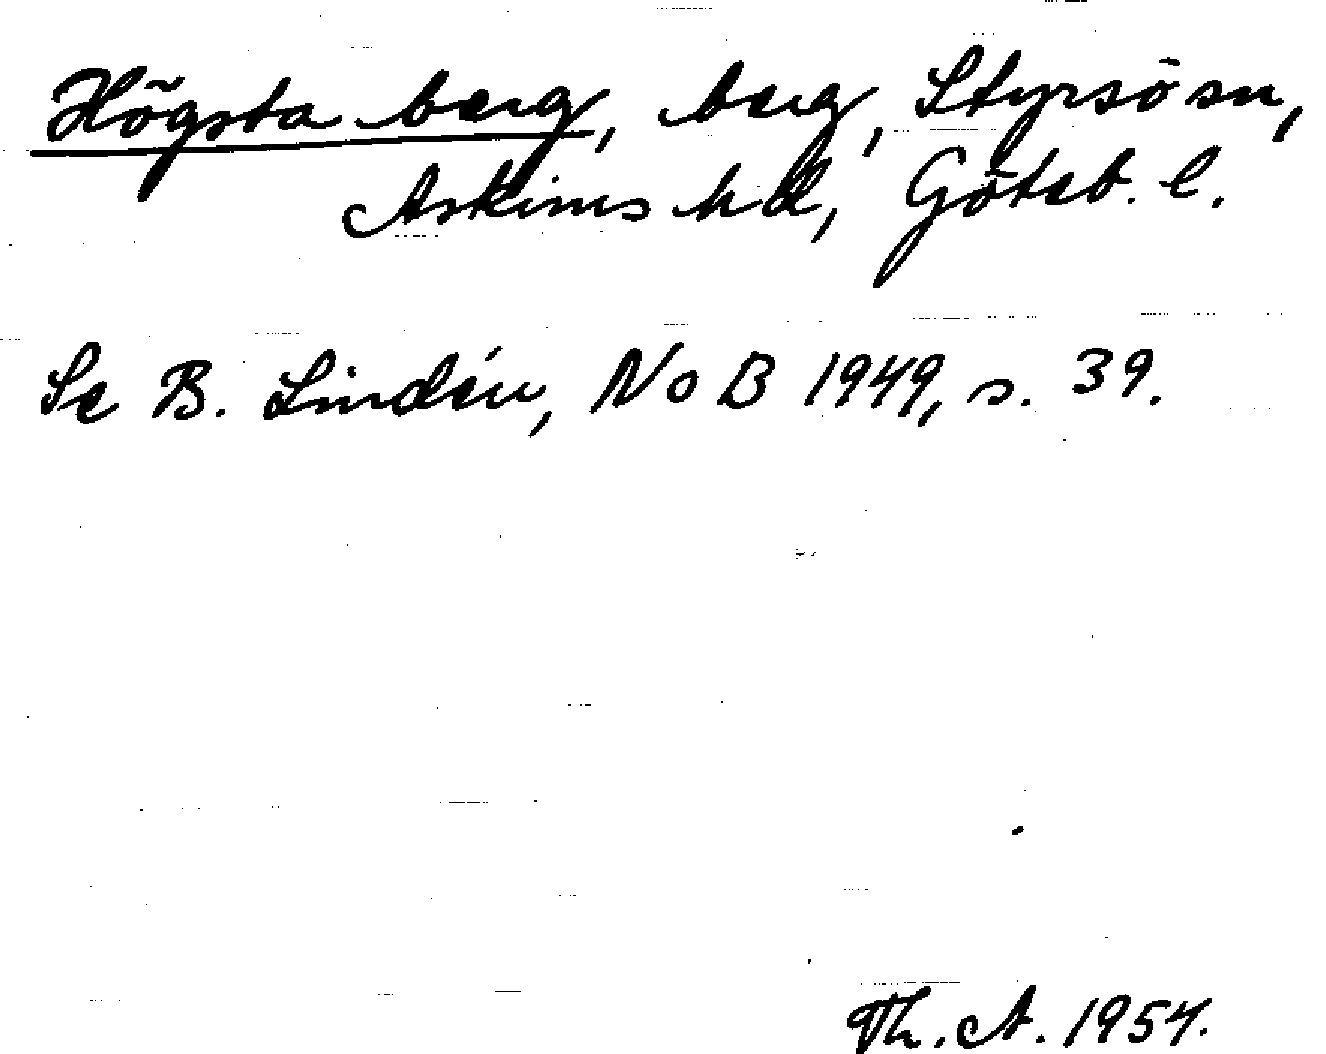 Högsta berg, berg, Styrsö sn,
Askims hd, Göteb. l.
Se B. Lindén, NoB 1949, s. 39.
Th. A. 1954.